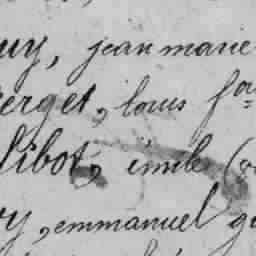 uy, jean marie
erget, louis fois
libot, émile (v
y, emmanuel g